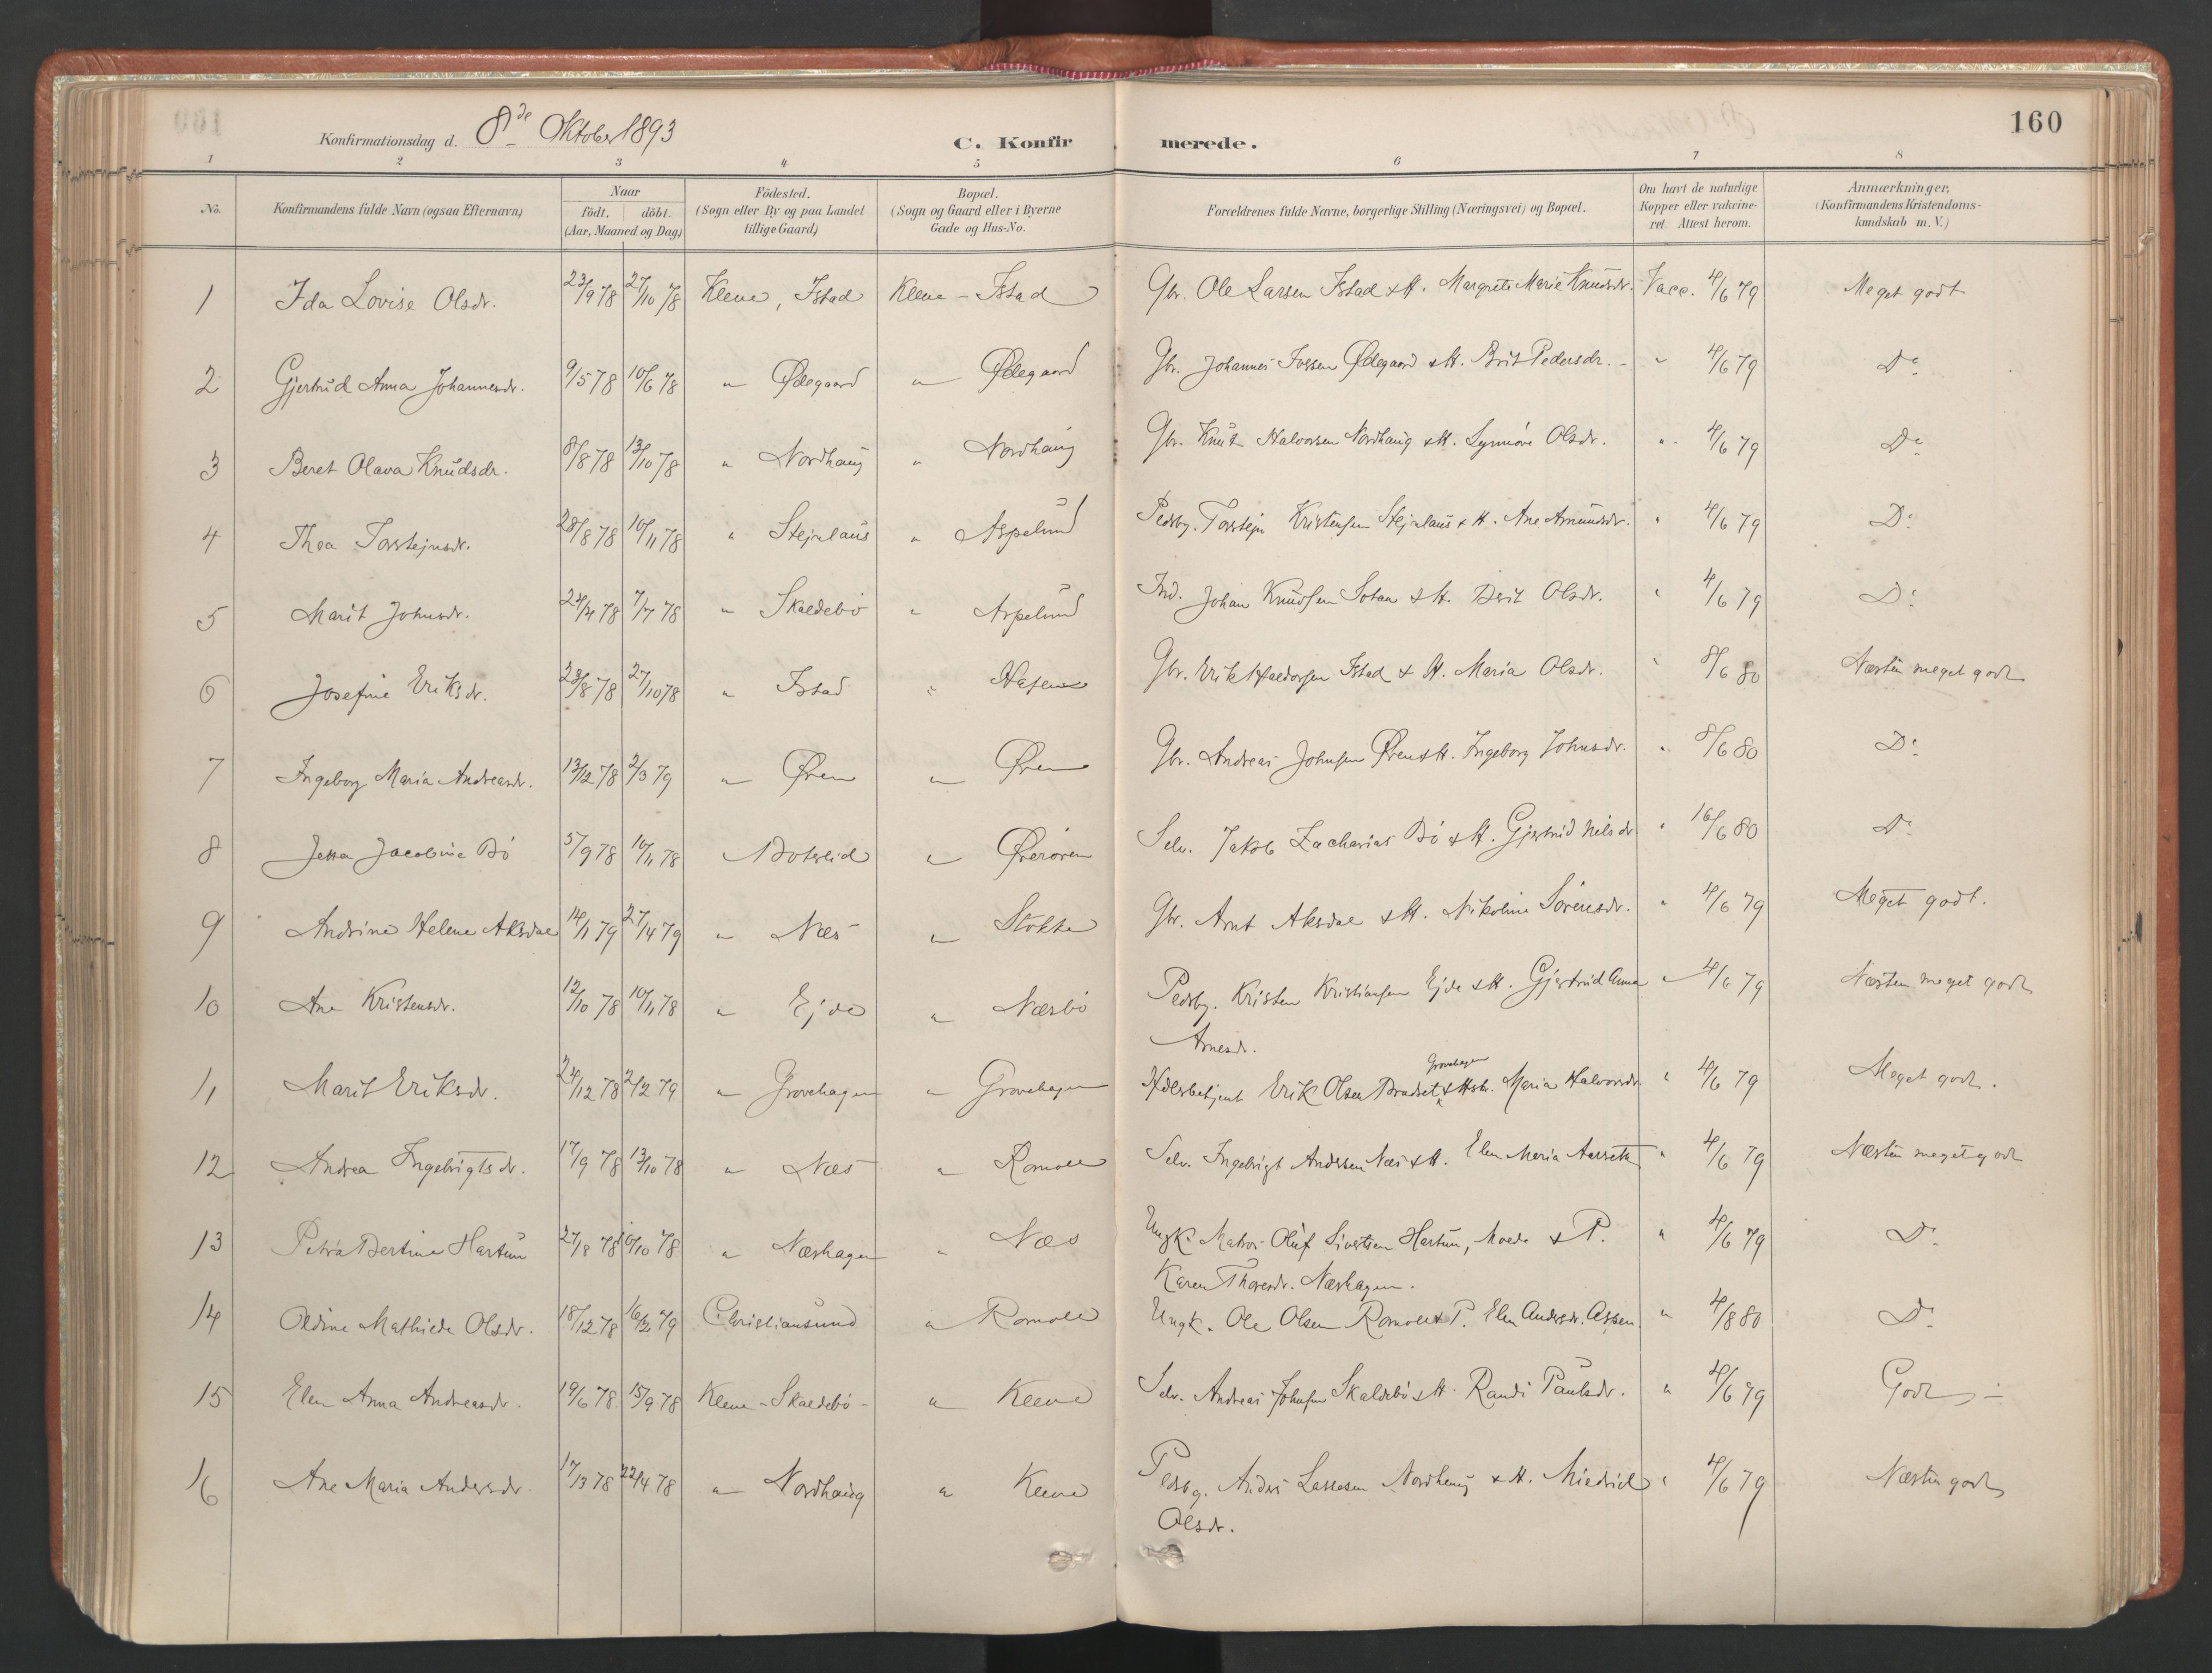 160
Konfirmationsdag d. 8de Oktober 1893 C. Konfirmerede.
1 2 3 4 5 6 7 8
No. Konfirmandens fulde Navn (ogsaa Efternavn) Naar födt. döbt. (Aar, Maaned og Dag) Födested. (Sogn eller By og paa Landet tillige Gaard) Bopæl. (Sogn og Gaard eller i Byerne Gade og Hus-No. Forældrenes fulde Navne, borgerlige Stilling (Næringsvei) og Bopæl. Om havt de naturlige Kopper eller vakcineret. Attest herom. Anmærkninger, (Konfirmandens Kristendomskundskab m. V.)
1 Ida Lovise Olsdr. 23/9 78 27/10 78 Kleve, Istad Kleve - Istad Gbr. Ole Larsen Istad & H. Margrete Marie Knudsdr. Vacc. 4/6 79 Meget godt
2 Gjertrud Anna Johannesdr. 9/5 78 10/6 78 " Ødegaard " Ødegaard Gbr. Johannes Iversen Ødegaard & H. Brit Pedersdr. - " 4/6 79 Do
3 Beret Olava Knudsdr. 8/8 78 13/10 78 " Nordhaug " Nordhaug Gbr. Knut Halvorsen Nordhaug & H. Synnöve Olsdr. " 4/6 79 Do
4 Thea Torstejnsdr. 28/8 78 10/11 78 " Stejnlaus " Aspelund Pedsbg. Torstejn Kristensen Stejnlaus & H. Ane Amundsdr. " 4/6 79 Do
5 Marit Johnsdr. 24/4 78 7/7 78 " Skaldebö " Aspelund Ind. Johan Knudsen Sotan & H. Berit Olsdr. " 4/6 79 Do
6 Josefine Eriksdr. 23/8 78 27/10 78 " Istad " Gbr. Erik Haldorsen Istad & H. Maria Olsdr. " 8/6 80 Næsten meget godt
7 Ingeborg Maria Andreasdr. 13/12 78 2/3 79 " Øren " Øren Gbr. Andreas Johnsen Øren & H. Ingeborg Johnsdr. " 8/6 80 Do
8 Jetta Jacobine Bö 5/9 78 10/11 78 Botslid " Ørerören Selv. Jakob Zacharias Bö & H. Gjertrud Nilsdr. " 16/6 80 Do
9 Andrine Helene Aksdal 14/1 79 27/4 79 " Næs " Stokke Gbr. Arnt Aksdal & H. Nikoline Sörensdr. " 4/6 79 Meget godt.
10 Ane Kristensdr. 12/10 78 10/11 78 " Ejde " Næsbö Pedsbg. Kristen Kristiansen Ejde & H. Gjertrud Anna " 4/6 79 Næsten meget godt
Arnesdr.
Grovehagen
11 Marit Eriksdr. 24/12 78 2/2 79 " Grovehagen " Grovehagen Erik Olsen Bradset & Hstr. Maria Halvorsdr. " 4/6 79 Meget godt.
12 Andrea Ingebrigtsdr. 17/9 78 13/10 78 " Næs " Romoll Selv. Ingebrigt Andersen Næs & H. Elen Maria " 4/6 79 Næsten meget godt
13 Petra Bertine Hartun 27/8 78 6/10 78 " Næshagen " Næs Ungk. Matros Oluf Sivertsen Hartun, & P. " 4/6 79 Do
Karen Thoresdr. Næshagen.
14 Oldine Mathilde Olsdr. 18/12 78 16/2 79 Christiansund " Romoll Ungk. Ole Olsen Romoll & P. Elen Andersdr. Aspen " 4/8 80 Do
15 Elen Anna Andreasdr. 19/6 78 15/9 78 Kleve - Skaldebö - " Kleve Selv. Andreas Johnsen Skaldebö & H. Randi Paulsdr. " 4/6 79 Godt
16 Ane Maria Andersdr. 17/3 78 22/4 78 " Nordhaug " Kleve Pedsbg. Anders Lassesen Nordhaug & H. " 4/6 79 Næsten godt
Olsdr.